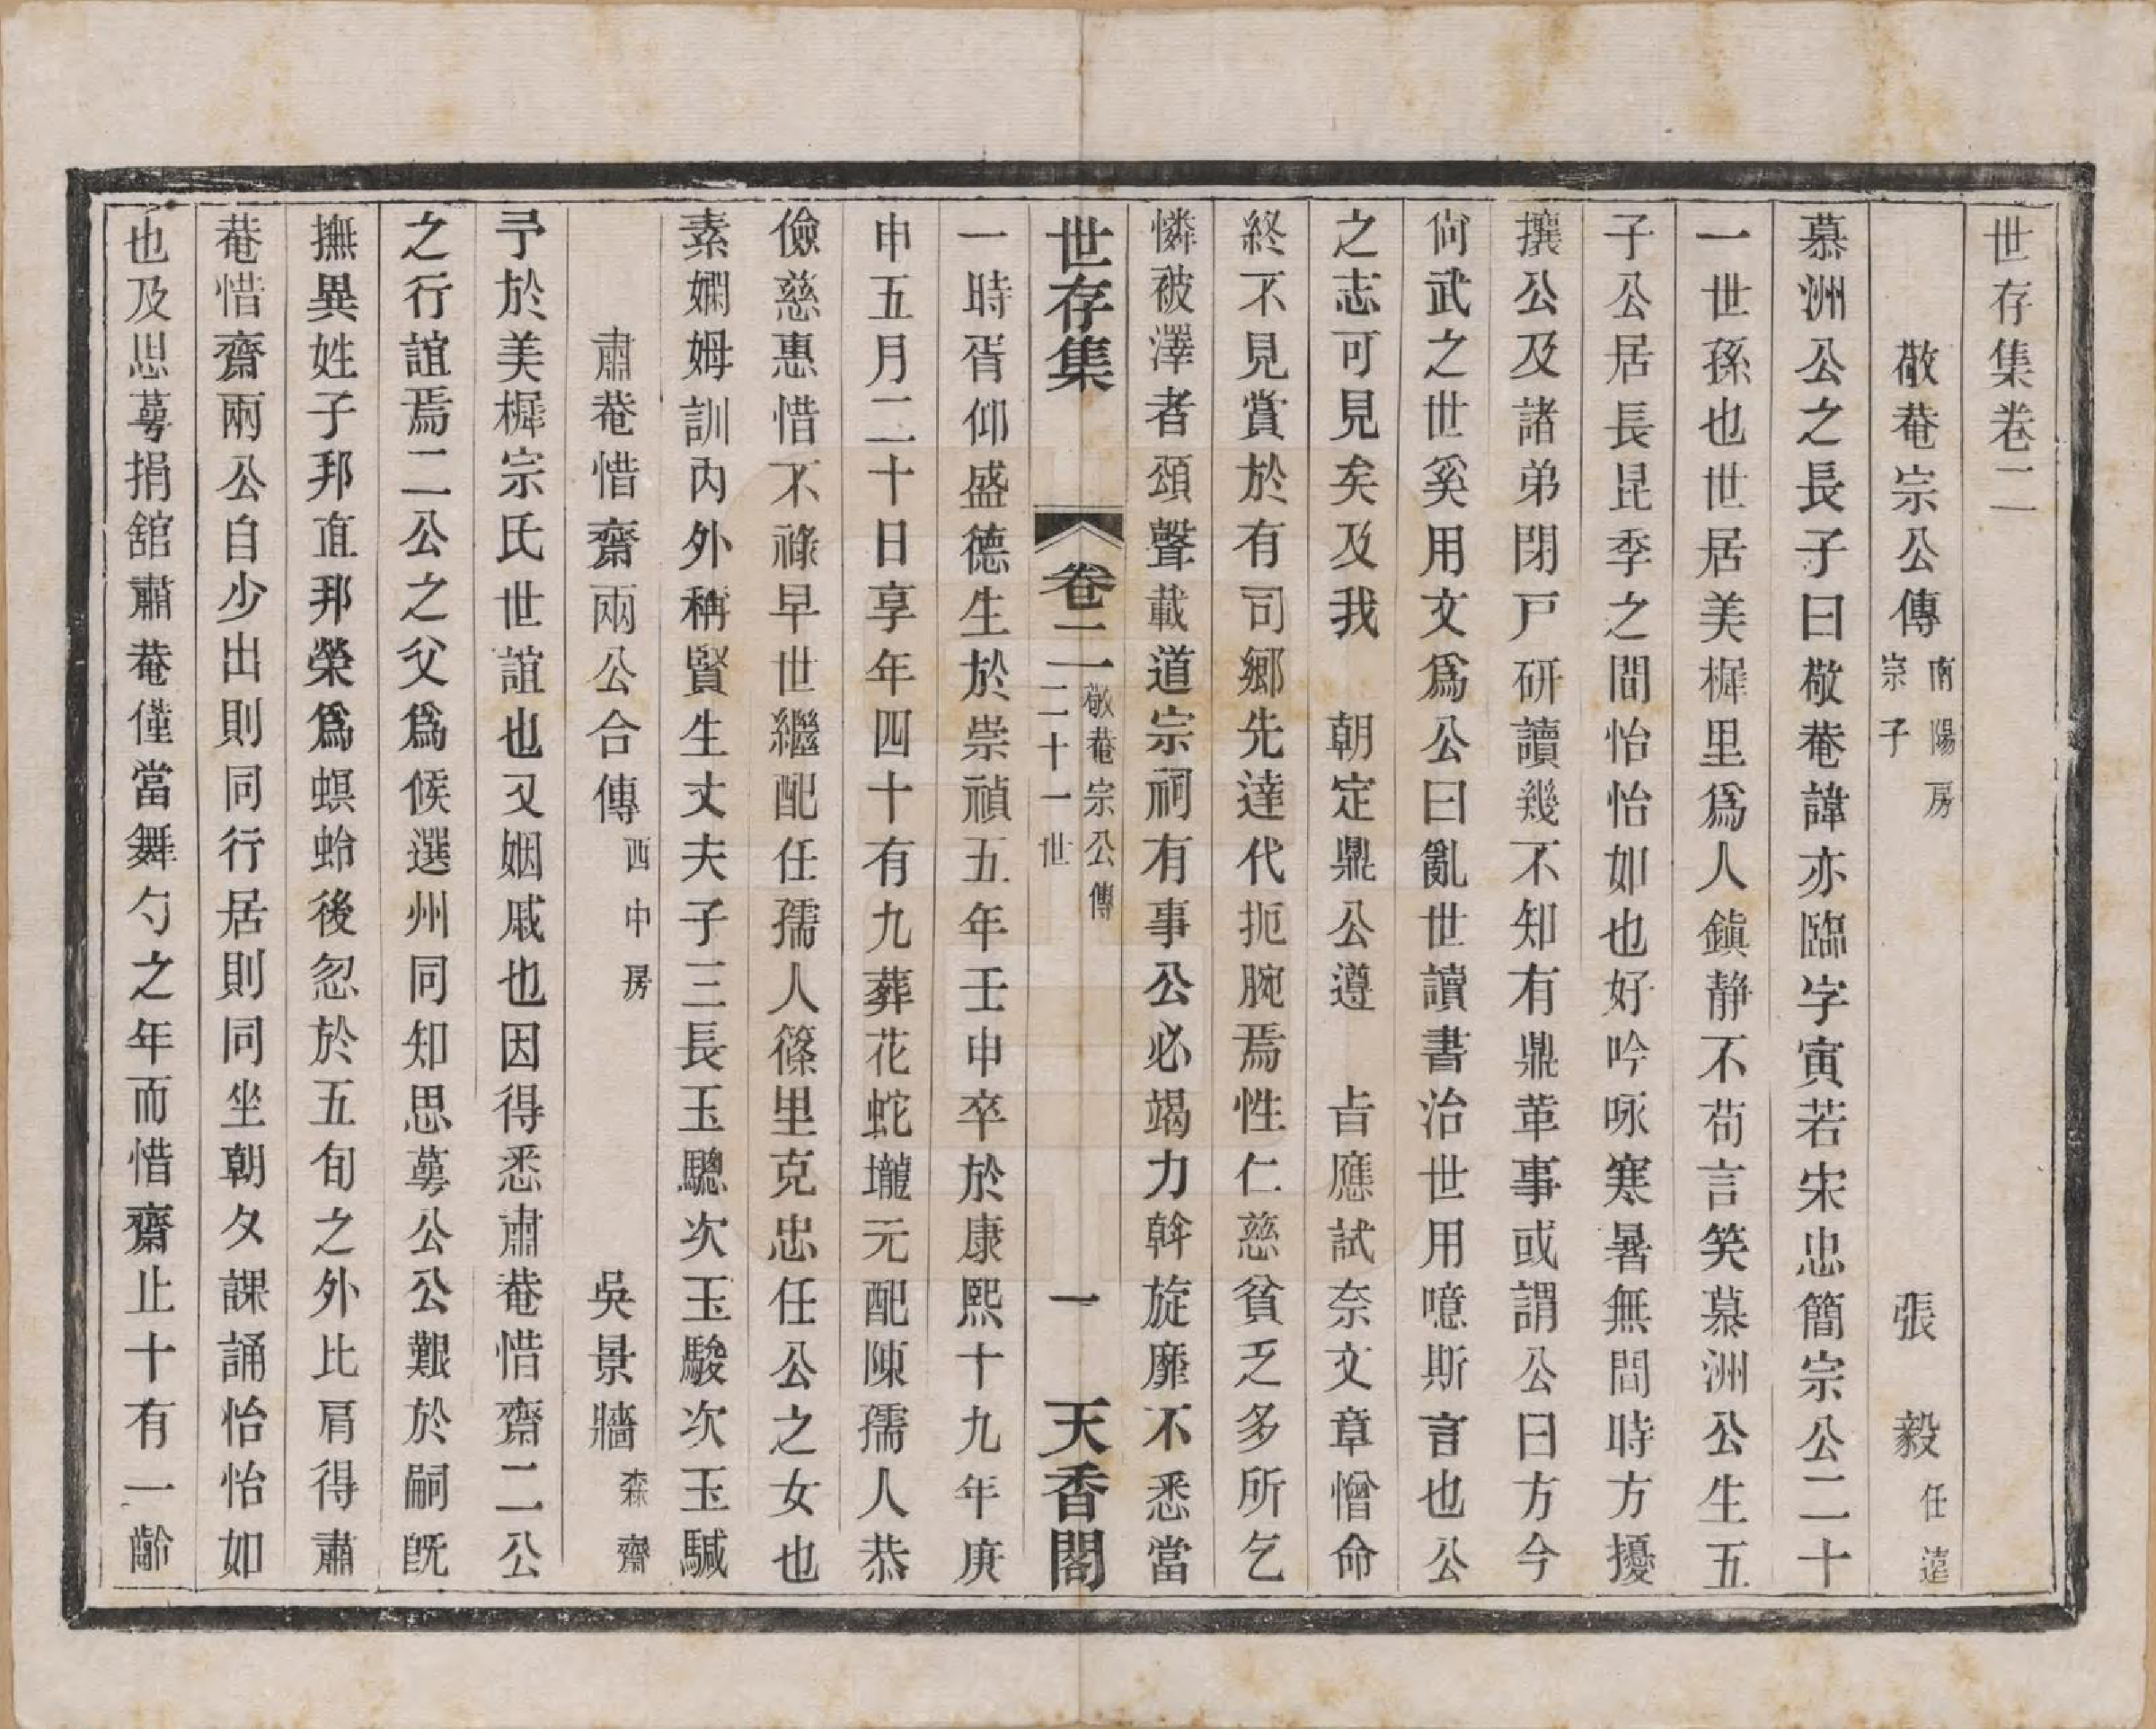 世存集卷二
敬菴宗公傳 南陽房崇子 張毅 任遠
慕洲公之長子曰敬菴諱亦臨字寅若宋忠簡宗公二十
一世孫也世居美樨里爲人鎮静不苟言笑慕洲公生五
子公居長昆季之間怡怡如也好吟咏寒暑無間時方擾
攘公及諸弟閉戸研讀幾不知有鼎革事或謂公曰方今
尙武之世奚用文爲公曰亂世讀書治世用噫斯言也公
之志可見矣及我 朝定鼎公遵 㫖應試奈文章憎命
終不見賞於有司鄉先達代扼腕焉性仁慈貧乏多所乞
憐被澤者頌聲載道宗祠有事公必竭力斡旋靡不悉當
世存集 卷二 敬菴宗公傳 二十一世 一 天香閣
一時胥仰盛德生於崇禎五年壬申卒於康熙十九年庚
申五月二十日享年四十有九葬花蛇壠元配陳孺人恭
儉慈惠惜不祿早世繼配任孺人篠里克忠任公之女也
素嫻姆訓內外稱賢生丈夫子三長玉驄次玉駿次玉駴
肅菴惜齋兩公合傳 西中房 吳景牆 森齋
予於美樨宗氏世誼也又姻戚也因得悉肅菴惜齋二公
之行誼焉二公之父爲候選州同知思蕚公公艱於嗣旣
撫異姓子邦直邦榮爲螟蛉後忽於五旬之外比肩得肅
菴惜齋兩公自少出則同行居則同坐朝夕課誦怡怡如
也及思蕚捐舘肅菴僅當舞勺之年而惜齋止十有一齡